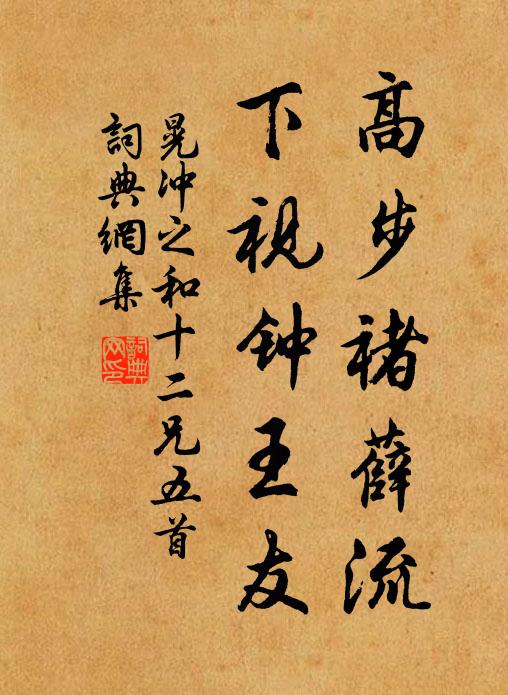 高步褚薛流
下视钟王友
晁冲之和十二兄五首
詞典網集
詞典网印